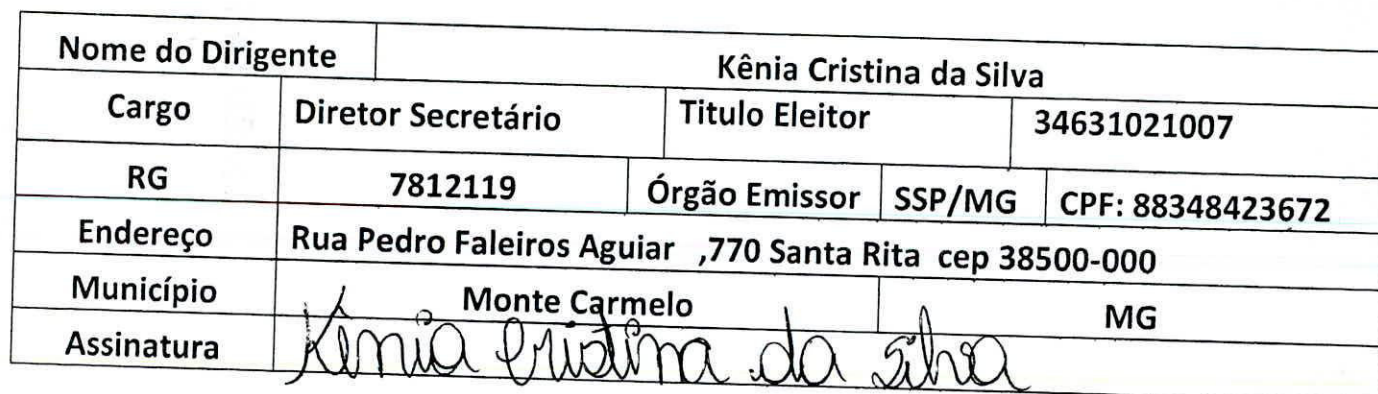 Nome do Dirigente Kênia Cristina da Silva
Cargo Diretor Secretário Titulo Eleitor 34631021007
RG 7812119 Órgão Emissor SSP/MG CPF: 88348423672
Endereço Rua Pedro Faleiros Aguiar ,770 Santa Rita cep 38500-000
Município Monte Carmelo MG
Assinatura Kênia Cristina da Silva